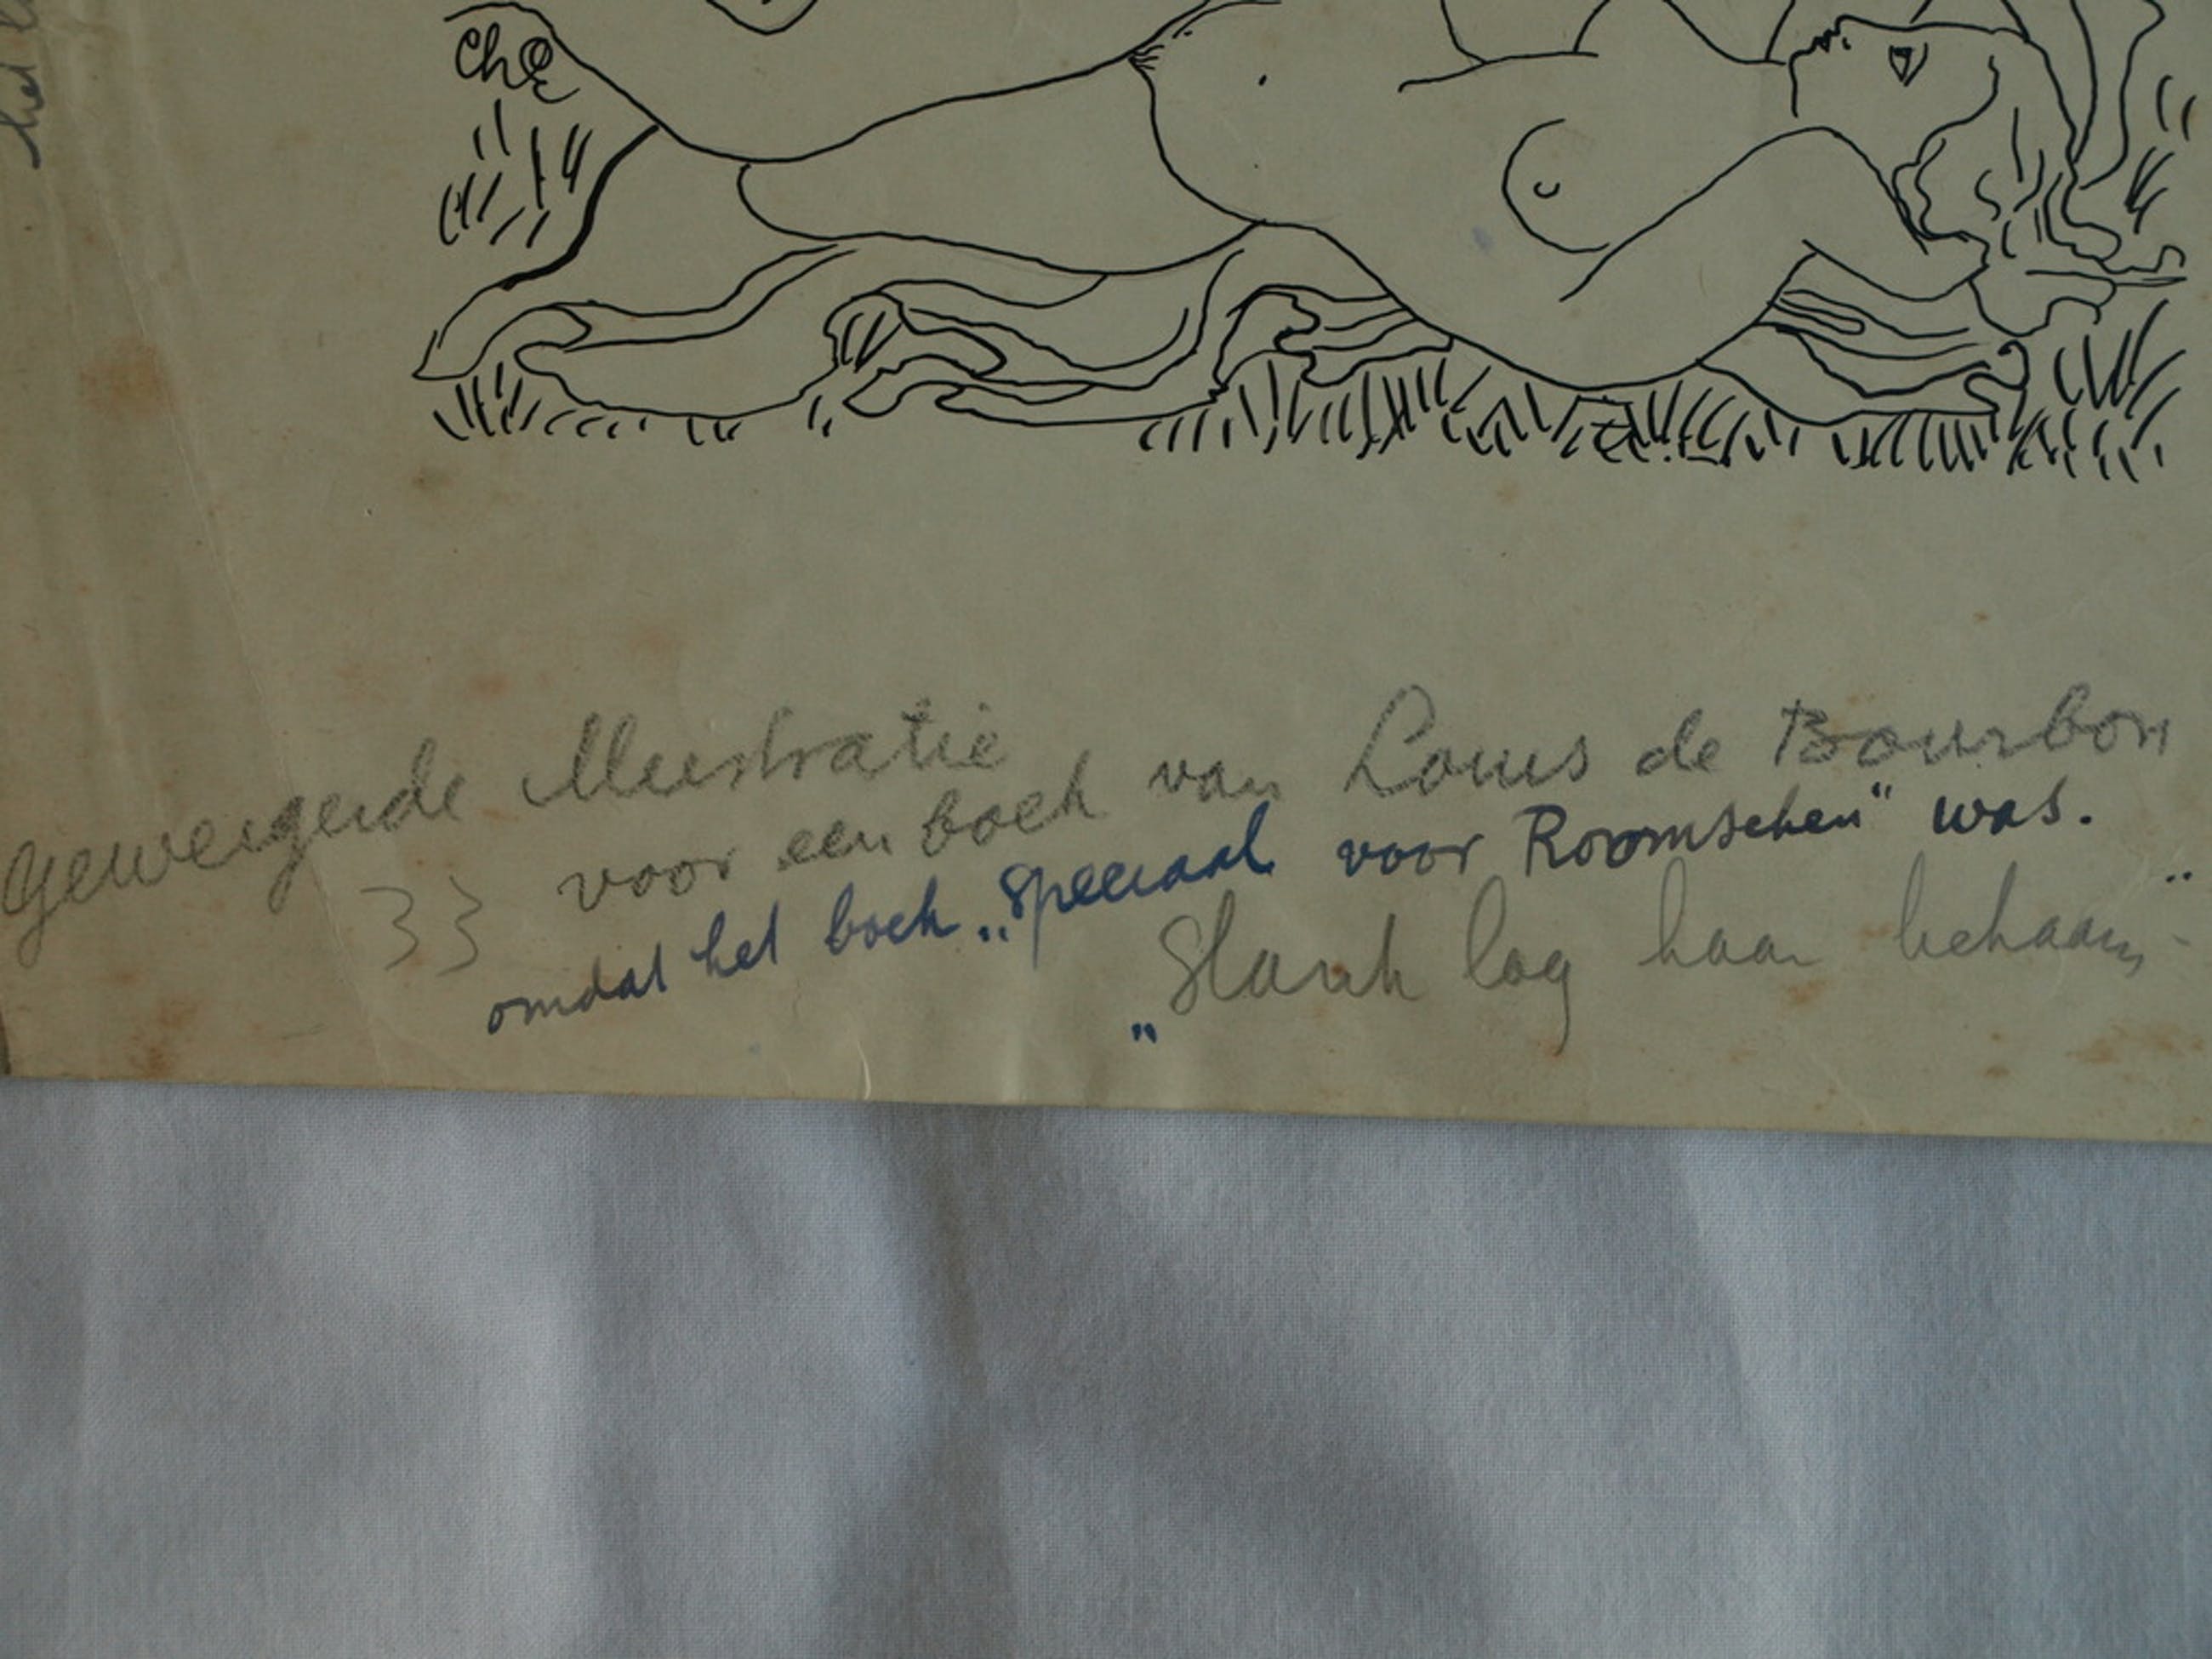 Che
het
geweigerde Illustratie
33 voor een boek van Louis de Bourbon
omdat het boek „speciaal voor Roomschen" was.
„Slank lag haar lichaam"